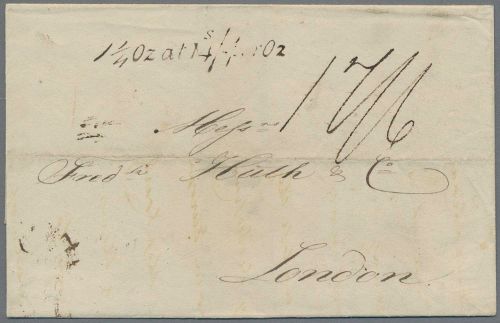 1¼Oz at 1s/4 pr Oz
17/6
Messrs
Fredk Huth & Co
London